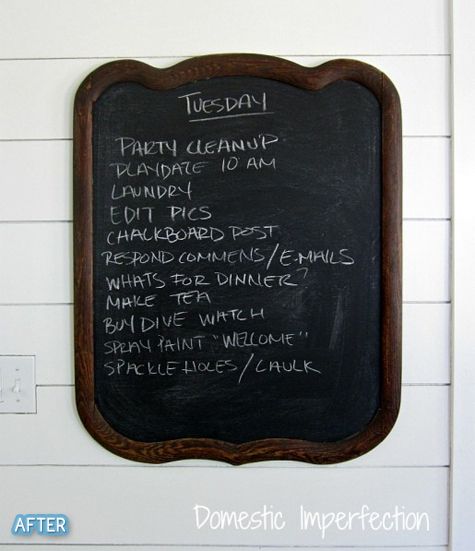 TUESDAY
PARTY CLEANUP
PLAYDATE 10 AM
LAUNDRY
EDIT PICS
CHALKBOARD POST
RESPOND COMMENS/E.MAILS
WHATS FOR DINNER?
MAKE TEA
BUY DIVE WATCH
SPRAY PAINT "WELCOME"
SPACKLE HOLES/CAULK
AFTER
Domestic Imperfection